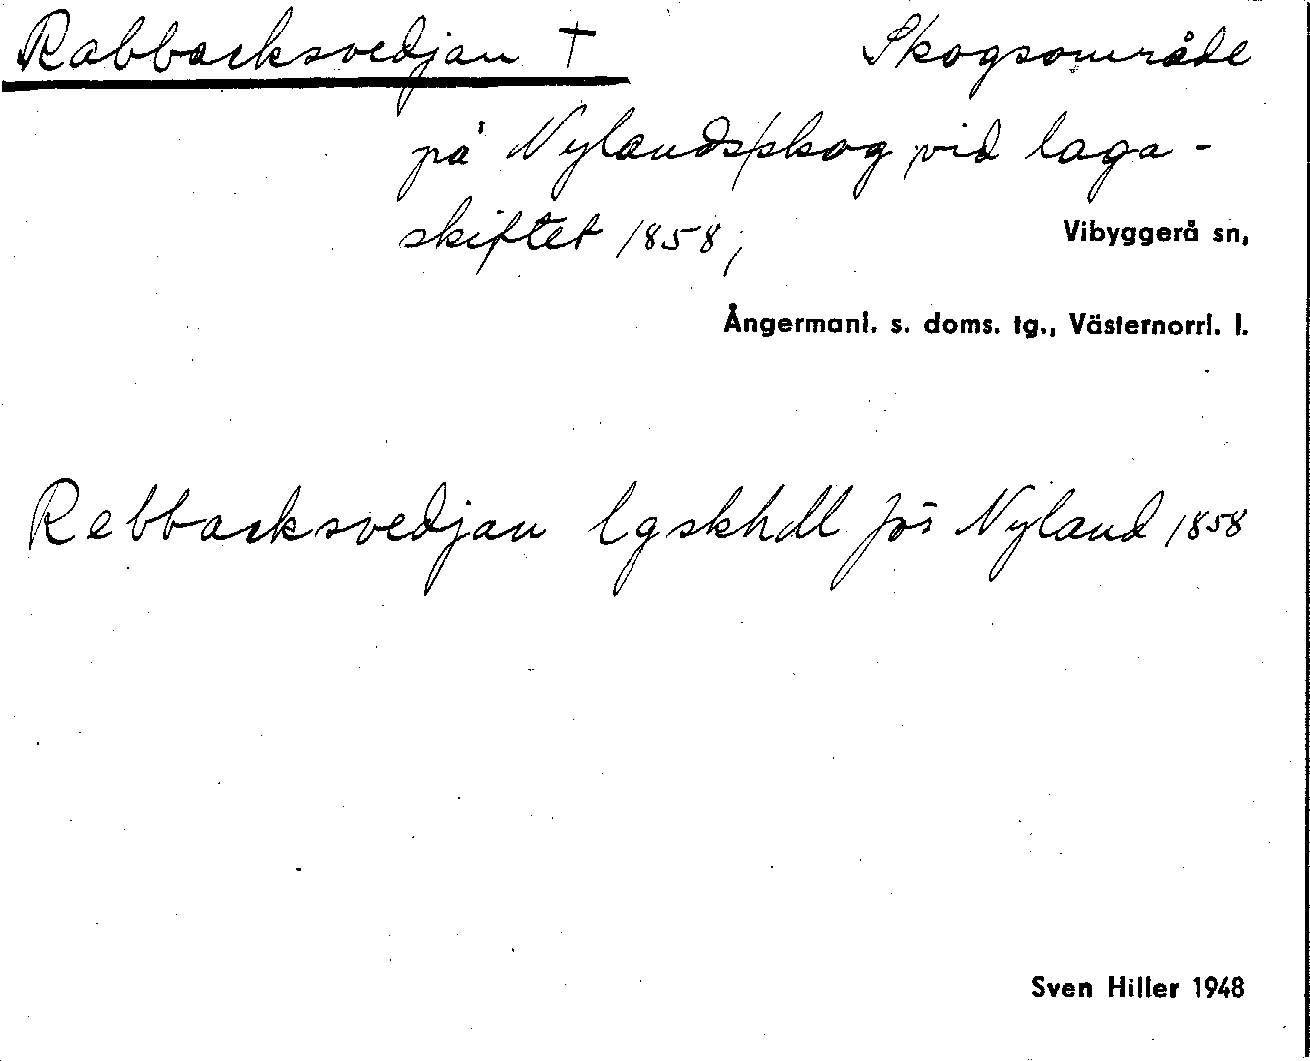 Rabbacksvedjan † Skogsområde
på Nylands skog vid laga-
skiftet 1858;
Vibyggerå sn,
Ångermanl. s. doms. tg., Västernorrl. l.
Rebbacksvedjan lgskhdl för Nyland 1858
Sven Hiller 1948